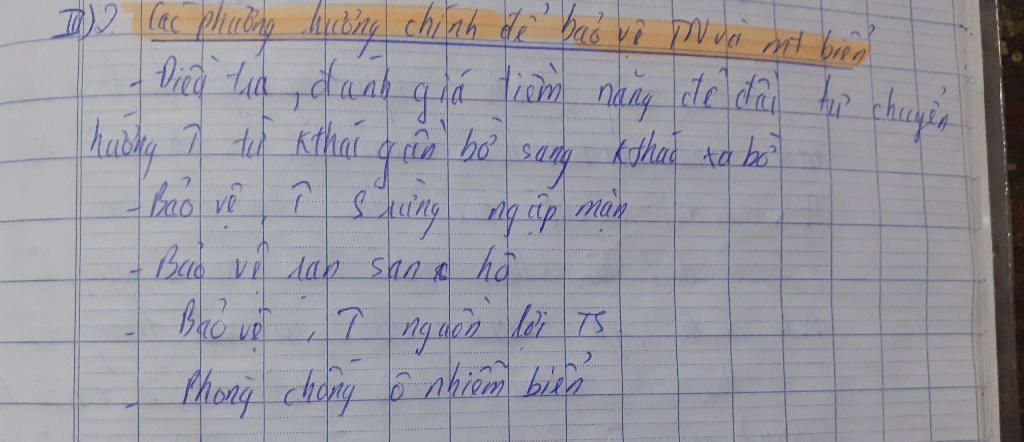 III) 2. Các phương hướng chính để bảo vệ TN và mt biển
- Điều tra, đánh giá tiềm năng để đầu tư chuyển
hướng ↑ từ kthác gần bờ sang kthác xa bờ
- Bảo vệ, ↑ S rừng ngập mặn
- Bảo vệ rạn san hô
- Bảo vệ, ↑ nguồn lợi TS
- Phòng chống ô nhiễm biển